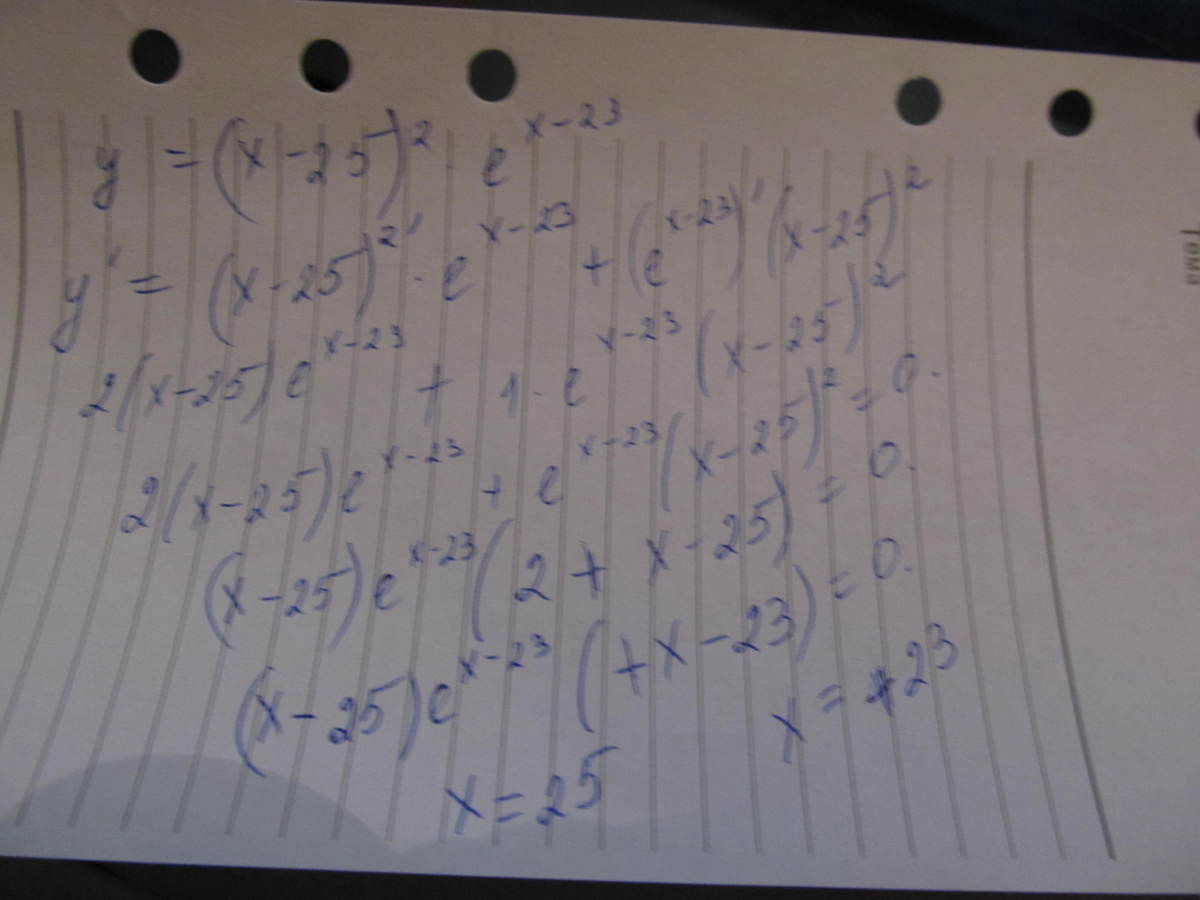 y = (x-25)² · e^(x-23)
y' = (x-25)²' · e^(x-23) + (e^(x-23))' (x-25)²
2(x-25)e^(x-23) + 1 · e^(x-23) (x-25)² = 0.
2(x-25)e^(x-23) + e^(x-23) (x-25)² = 0.
(x-25)e^(x-23) (2 + x-25) = 0.
(x-25)e^(x-23) (+x-23) = 0.
x = 25
x = +23
Тема